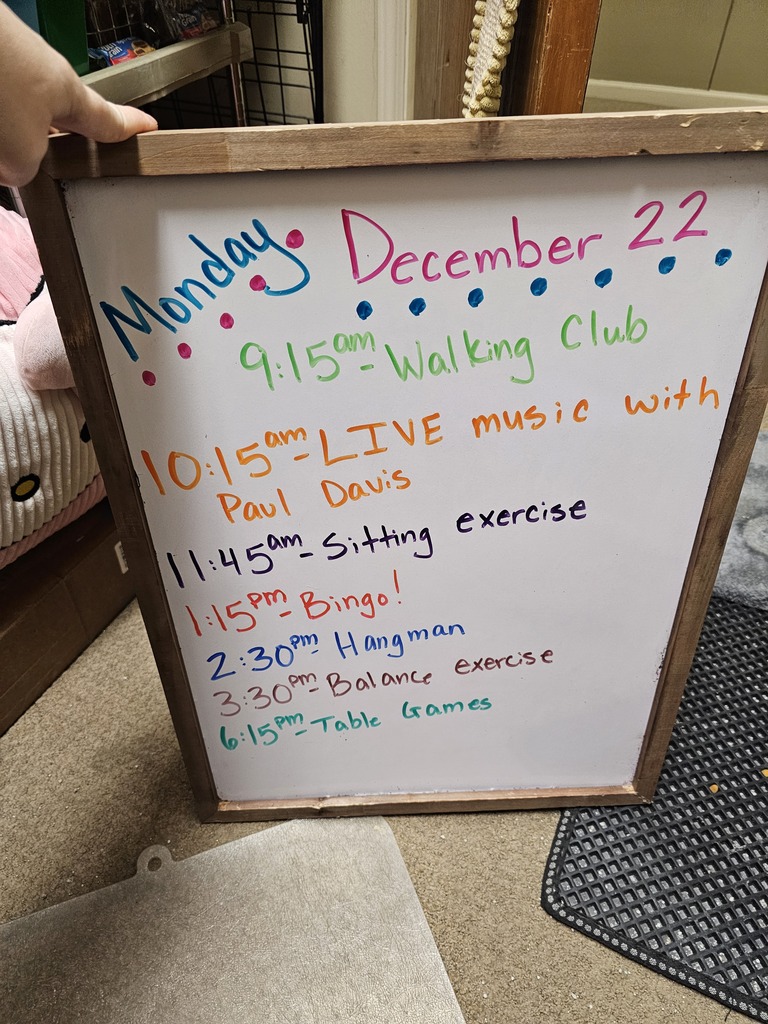 Monday December 22
9:15am - Walking Club
10:15am - LIVE music with
Paul Davis
11:45am - Sitting exercise
1:15pm - Bingo!
2:30pm - Hangman
3:30pm - Balance exercise
6:15pm - Table Games